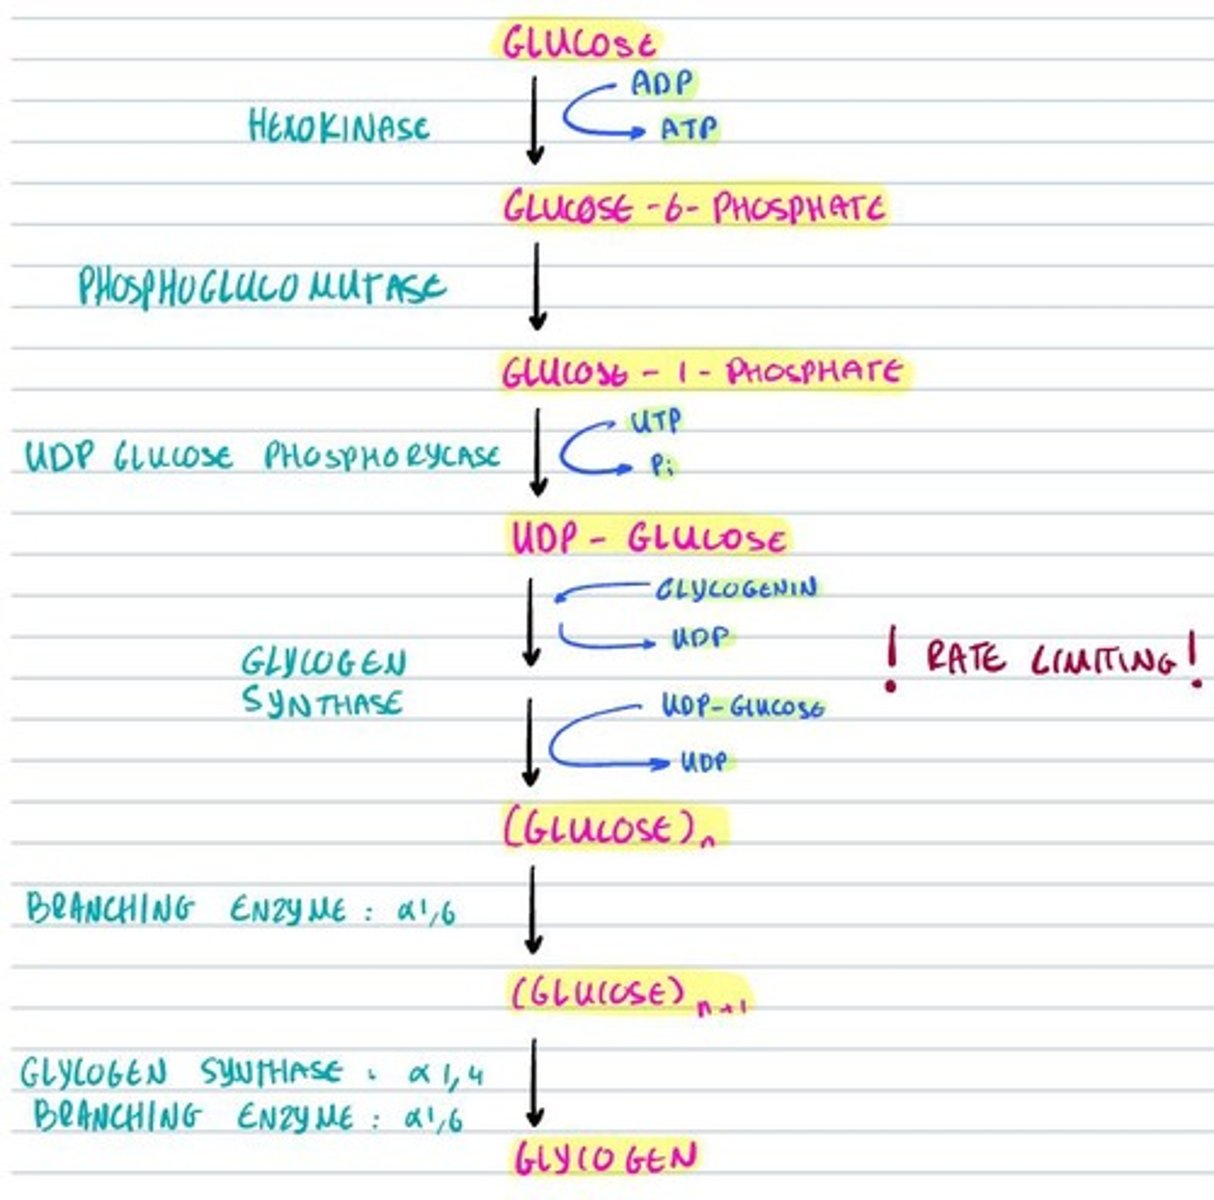 GLUCOSE
ADP
HEXOKINASE
ATP
GLUCOSE - 6 - PHOSPHATE
PHOSPHOGLUCOMUTASE
GLUCOSE - 1 - PHOSPHATE
UTP
UDP GLUCOSE PHOSPHORYCASE
Pi
UDP - GLUCOSE
GLYCOGENIN
UDP
GLYCOGEN
! RATE LIMITING!
SYNTHASE
UDP-GLUCOSE
UDP
(GLUCOSE)n
BRANCHING ENZYME: α1,6
(GLUCOSE)n+1
GLYCOGEN SYNTHASE: α 1,4
BRANCHING ENZYME: α1,6
GLYCOGEN